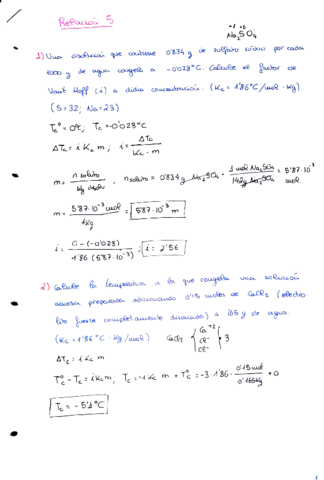 Relación 5
+2 +6
Na₂SO₄
1) Una disolución que contiene 0'834 g de sulfato sódico por cada
1000 g de agua congela a -0'028°C. Calcule el factor de
Vant Hoff (i) a dicha concentración. (Kc = 1'86°C / mol · Kg)
(S=32; Na=23)
Tc° = 0°C; Tc = -0'028°C
ΔTc = i Kc m; i = ΔTc / Kc · m
m = n soluto / Kg disolv; n soluto = 0'834 g Na₂SO₄ · 1 mol Na₂SO₄ / 142g Na₂SO₄ = 5'87·10⁻³ mol
m = 5'87·10⁻³ mol / 1Kg = 5'87·10⁻³ m
i = 0-(-0'028) / 1'86 (5'87·10⁻³); i = 2'56
2) Calcule la temperatura a la que congela una solución
acuosa preparada adicionando 0'15 moles de CaCl₂ (electro-
lito fuerte completamente disociado) a 165 g de agua.
(Kc = 1'86°C · Kg / mol) CaCl₂ { Ca⁺² Cl⁻ Cl⁻ } 3
ΔTc = i Kc m
Tc° - Tc = i Kc m; Tc = -i Kc m + Tc° = -3·1'86· 0'15 mol / 0'165 Kg + 0
Tc = -5'1°C
1